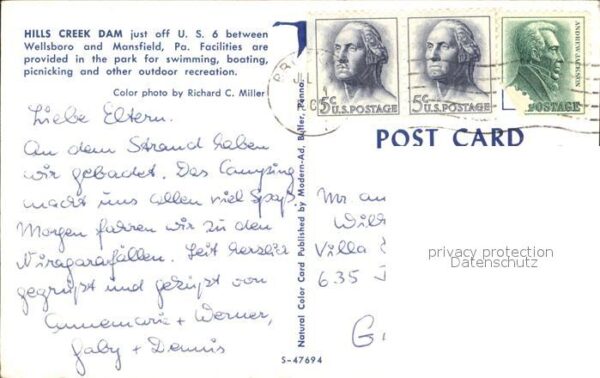 HILLS CREEK DAM just off U. S. 6 between
Wellsboro and Mansfield, Pa. Facilities are
provided in the park for swimming, boating,
picnicking and other outdoor recreation.
Color photo by Richard C. Miller
Liebe Eltern.
An dem Strand haben
wir gebadet. Das Camping
macht uns allen viel Spaß.
Morgen fahren wir zu den
Niagarafällen. Seit herzlich
gegrüßt und geküßt von
Annemarie + Werner,
Gaby + Dennis
Natural Color Card Published by Modern-Ad, Butler, Penna.
S-47694
5c U.S. POSTAGE
5c U.S. POSTAGE
ANDREW JACKSON
POSTAGE
POST CARD
Mr. an
Wil
Villa
635
G
privacy protection
Datenschutz